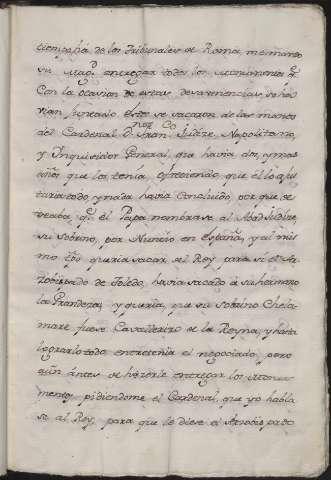 tiempo hà de los Tribunales de Roma, me mando
su Mag.d entregar todos los instrumentos q.e
Con la ocasion de estas desavenencias, se ha
vian juntado. Estos se sacaron de las manos
del Cardenal D. Fran.co Judice, Napolitano,
y Inquisidor General, que havia dos, y mas
años que los tenia, ofreciendo que èl lo ajus
taria todo, y nada havia Concluido, por que de
seaba q.e el Papa nombrase al Abad Judice,
su sobrino, por Nuncio en España, y al mis
mo tpō queria sacar del Rey para si el Ar
zobispado de Toledo, havia sacado à su hermano
la Grandeza, y queria, que su sobrino Chela
mare fuese Cavallerizo de la Reyna, y hasta
lograrlo todo entretenia el negociado, pero
aùn àntes de hacerle entregar los instru
mentos, pidiendome el Cardenal, que yo habla
se al Rey, para que le diese el Arzobispado